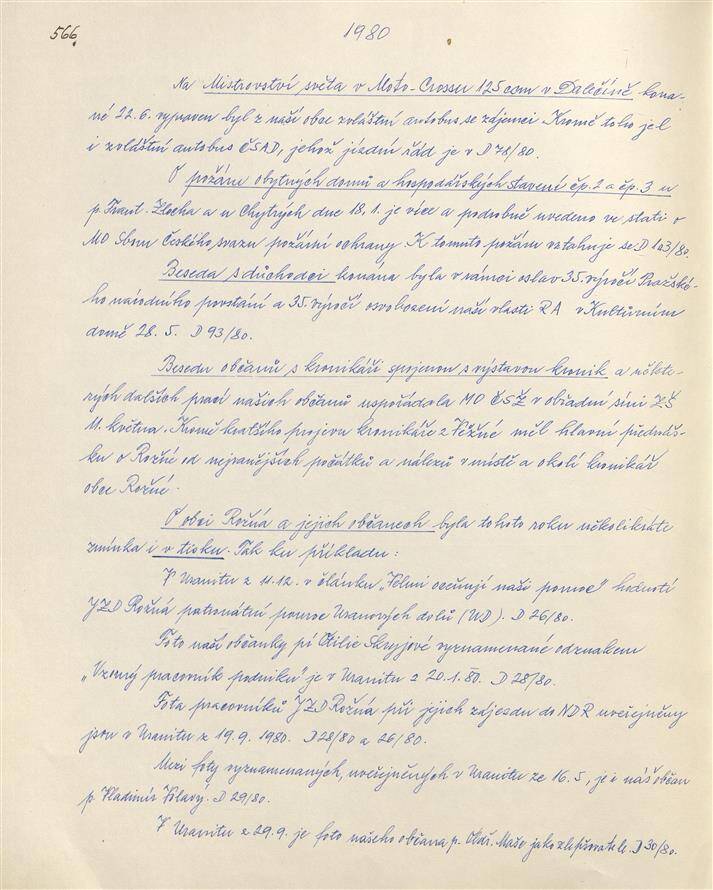 566.
1980
Na Mistrovství světa v Moto-Crosser 125 ccm v Dalečíně kona-
né 22.6. vypraven byl z naší obce zvláštní autobus se zájemci. Kromě toho jel
i zvláštní autobus ČSAD, jehož jízdní řád je v D 78/80.
O požáru obytných domů a hospodářských stavení čp. 2 a čp. 3 u
p. Frant. Zlocha a u Chytrých dne 18.1. je více a podrobně uvedeno ve stati o
MO Sboru Českého svazu požární ochrany. K tomuto požáru vztahuje se D 1 a 3/80.
Beseda s důchodci konána byla v rámci oslav 35. výročí Pražské-
ho národního povstání a 35. výročí osvobození naší vlasti RA v Kulturním
domě 28.5. D 93/80.
Besedu občanů s kronikáři spojenou s výstavou kronik a někte-
rých dalších prací našich občanů uspořádala MO ČSŽ v obřadní síni ZŠ
11. května. Kromě kratšího projevu kronikáře z Věžné měl hlavní přednáš-
ku o Rožné od nejranějších počátků a nálezů v místě a okolí kronikář
obce Rožné.
O obci Rožná a jejich občanech byla tohoto roku několikráte
zmínka i v tisku. Tak ku příkladu:
V Uranitu z 11.12. v článku „Velmi oceňují naši pomoc" hodnotí
JZD Rožná patronátní pomoc Uranových dolů (UD). D 26/80.
Foto naší občanky pí Otilie Skryjové vyznamenané odznakem
„Vzorný pracovník podniku" je v Uranitu z 20.1.80. D 28/80.
Fota pracovníků JZD Rožná při jejich zájezdu do NDR uveřejněny
jsou v Uranitu z 19.9.1980. D 28/80 a 26/80.
Mezi foty vyznamenaných, uveřejněných v Uranitu ze 16.5, je i náš občan
p. Vladimír Volavý. D 29/80.
V Uranitu z 29.9. je foto našeho občana p. Oldř. Maše jako zlepšovatele. D 30/80.